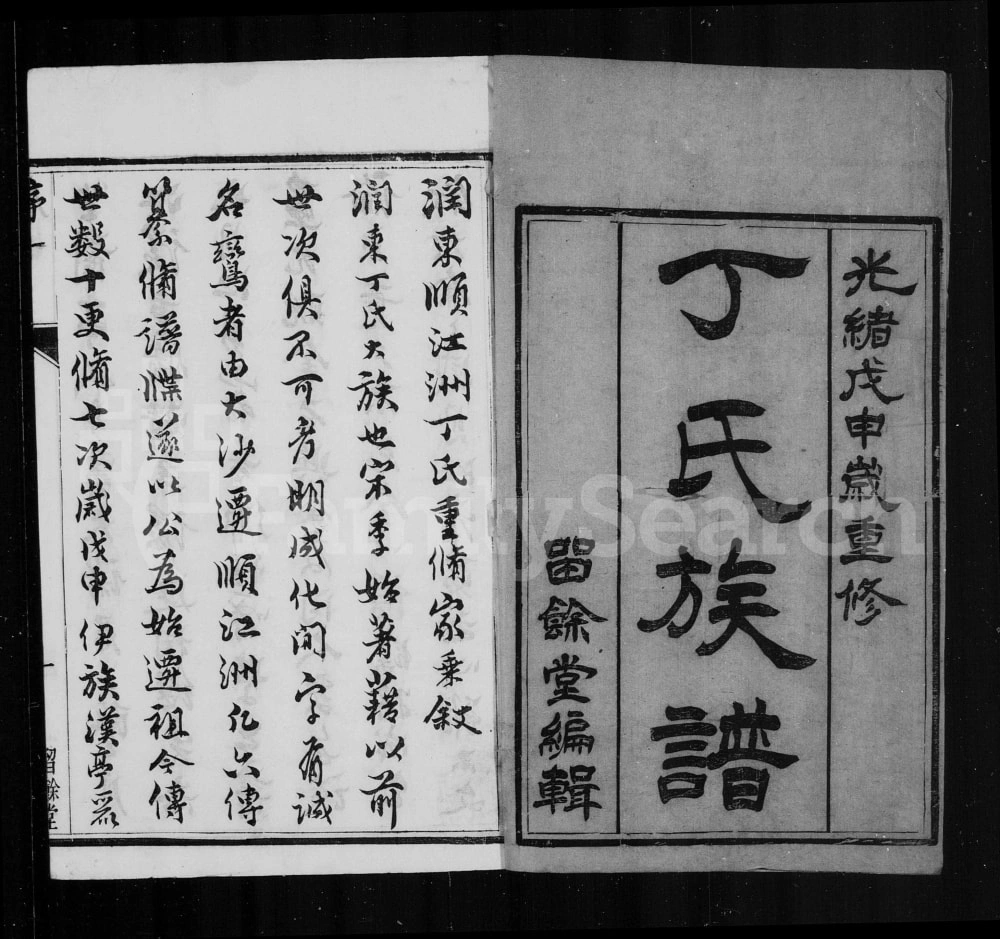 光緒戊申歲重修
丁氏族譜
畱餘堂編輯
潤東順江洲丁氏重脩家乘敘
潤東丁氏大族也宋季始著藉以前
世次俱不可考明成化間字有誠
名鸞者由大沙遷順江洲凡六傳
纂脩譜牒遂以公為始遷祖今傳
世數十更脩七次歲戊申伊族漢亭
序一
一
留餘堂
FamilySearch